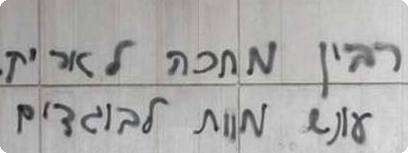 רבין מחכה לאריק
עונש מוות לבוגדים